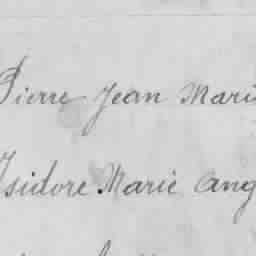 Pierre Jean Marie
Isidore Marie Ang